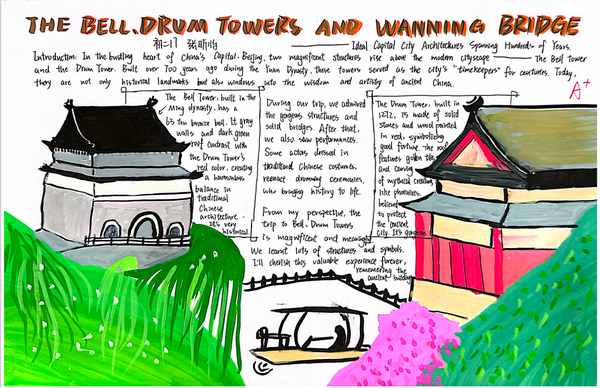 THE BELL.DRUM TOWERS AND WANNING BRIDGE
初二17
Ideal Capital City Architectures Spanning Hundreds of Years.
Introduction: In the bustling heart of China's Capital. Beijing, two magnificent structures rise above the modern cityscape — The Bell tower
and the Drum Tower. Built over 700 years ago during the Yuan Dynasty, these towers served as the city's "timekeepers" for centuries. Today,
they are not only historical landmarks but also windows into the wisdom and artistry of ancient China.
A+
The Bell Tower, built in the
Ming dynasty, has a
63 ton bronze bell. It gray
walls and dark green
roof contrast with
the Drum Tower's
red color, creating
a harmonious
balance in
traditional
Chinese
architecture.
It's very
historical
During our trip, we admired
the gorgeous structures and
solid bridges. After that,
we also saw performances.
Some actors dressed in
traditional Chinese costumes,
reenact drumming ceremonies,
who bringing history to life.
From my perspective, the
trip to Bell. Drum Towers
is magnificent and meaningful
We learnt lots of structures and symbols.
I'll cherish this valuable experience forever,
remembering the
ancient building
The Drum Tower, built in
1272, is made of solid
stones and wood painted
in red, symbolizing
good fortune. The roof
features golden tiles
and carvings
of mythical creatures
like phoenixes,
believed
to protect
the ancient
city. It's gorgeous